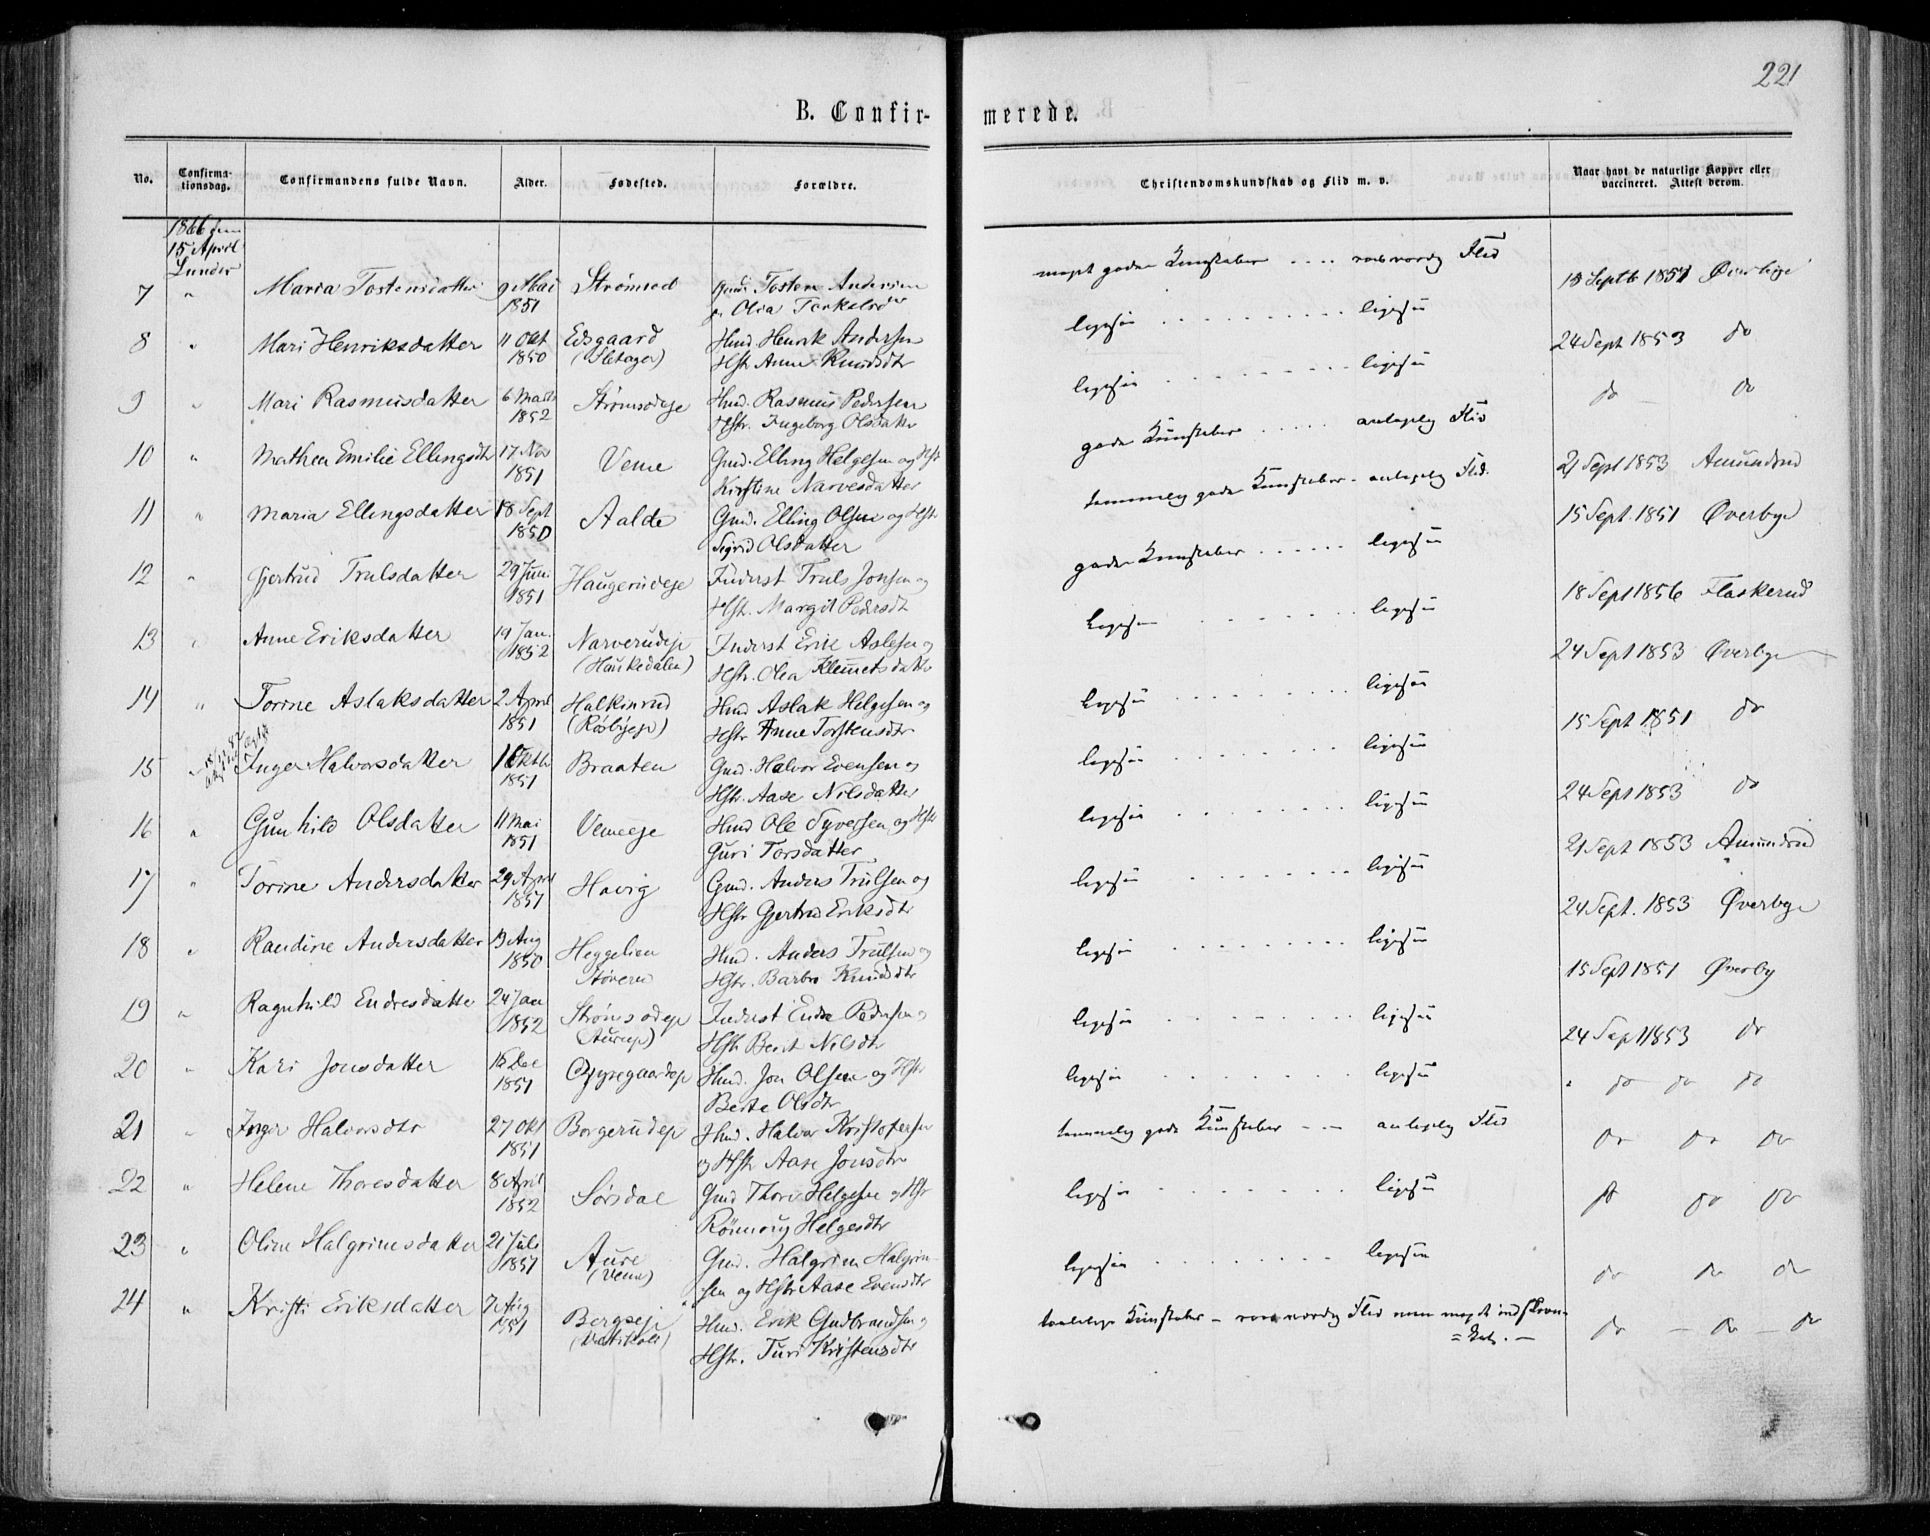 221
B. Confir-
merede.
No.
Confirma-
tionsdag.
Confirmandens fulde Navn.
Alder.
Fødested.
Forældre.
Christendomskundskab og Flid m. v.
Naar havt de naturlige Kopper eller
vaccineret. Attest derom.
1866 den
15 April
Lunder
7 " Maria Tostensdatter 9 Mai Strømsod Gmd. Tosten Andersen meget gode Kundskaber .... roesværdig Flid 13 Septb 1851 Øverbye
1851 Olia Torkelsdr
8 " Mari Henriksdatter 11 Okt Edsgaard Hmd. Henrik Andersen ligesaa . . . . . ligesaa 24 Sept 1853 do
1850 (Sletager) Hstr Anne Knudsdtr
9 " Mari Rasmusdatter 6 Marts Strømsodeje Hmd. Rasmus Pedersen ligesaa . . . . . ligesaa do do
1852 Hstr. Ingeborg Olsdatter
10 " Mathea Emilie Ellingsdtr 17 Nov Veme Gmd. Elling Helgesen og Hstr gode Kundskaber ..... antagelig Flid 21 Sept 1853 Amundrud
1851 Kirstine Narvesdatter
11 " Maria Ellingsdatter 18 Sept Aalde Gmd. Elling Olsen og Hstr temmelig gode Kundskaber - antagelig Flid. 15 Sept. 1851 Øverbye
1850 Sigrid Olsdatter
12 " Gjertrud Trulsdatter 29 Juni Haugerudeje Inderst Truls Jonsen og gode Kundskaber ...... ligesaa 18 Sept 1856 Flaskerud
1851 Hstr. Margit Pedersdtr
13 " Anne Eriksdatter 19 Jan. Narverudeje Inderst Erik Aslesen og ligesaa . . . . . ligesaa 24 Sept 1853 Øverbye
1852 (Haukedalen) Hstr. Olea Klemetsdatter
14 " Torine Aslaksdatter 2 April Halkinrud Hmd Aslak Helgesen og ligesaa . . . . . ligesaa 15 Sept 1851 do
1851 (Røsbyeje) Hstr Anne Torstensdtr
15 " Inger Halvorsdatter 1 Oktb Braaten Gmd. Halvor Evensen og ligesaa . . . . . ligesaa 24 Sept 1853 do
1851 Hstr. Aase Nilsdatter
16 " Gunhild Olsdatter 11 Mai Vemeeje Hmd Ole Syversen og Hstr ligesaa . . . . . ligesaa 21 Sept 1853 Amundrud
1851 Guri Torsdatter
17 " Torine Andersdatter 29 April Hovig Gmd. Anders Trulsen og ligesaa . . . . . ligesaa 24 Sept. 1853 Øverbye
1851 Hstr Gjertrud Eriksdtr
18 " Randine Andersdatter 13 Aug Heggelien Hmd. Anders Trulsen og ligesaa . . . . . ligesaa 15 Sept 1851 Øverby
1850 Støveren Hstr. Barbro Knudsdtr
19 " Ragnhild Endresdatter 24 Jan Strømsodeje Inderst Endre Pedersen og ligesaa . . . . . ligesaa 24 Sept 1853 do
1852 Hstr Berit Nilsdtr
20 " Kari Jonsdatter 15 Dec Hmd. Jon Olsen og Hstr ligesaa . . . . . ligesaa " do do do
1851 Berte Olsdtr
21 " Inger Halvorsdtr 27 Okt Borgerudeje Hmd. Halvor Kristofersen temmelig gode Kundskaber - - antagelig Flid do do do
1851 og Hstr Aase Jonsdtr
22 " Helene Thoresdatter 8 April Sørsdal Gmd Thore Helgesen og Hstr ligesaa . . . . . ligesaa do do do
1852 Rønnoug Helgesdtr
23 " Oline Halgrimsdatter 21 Juli Aure Gmd. Halgrim Halgrim- ligesaa . . . . . ligesaa do do do
1851 (Veme) sen og Hstr Aase Evensdtr
24 " Kristi Eriksdatter 7 Aug Bergseje Hmd. Erik Gudbrandsen og taalelige Kundskaber - roesværdig Flid men meget indskræn- do - do - do
1851 Hstr. Turi Kristensdtr